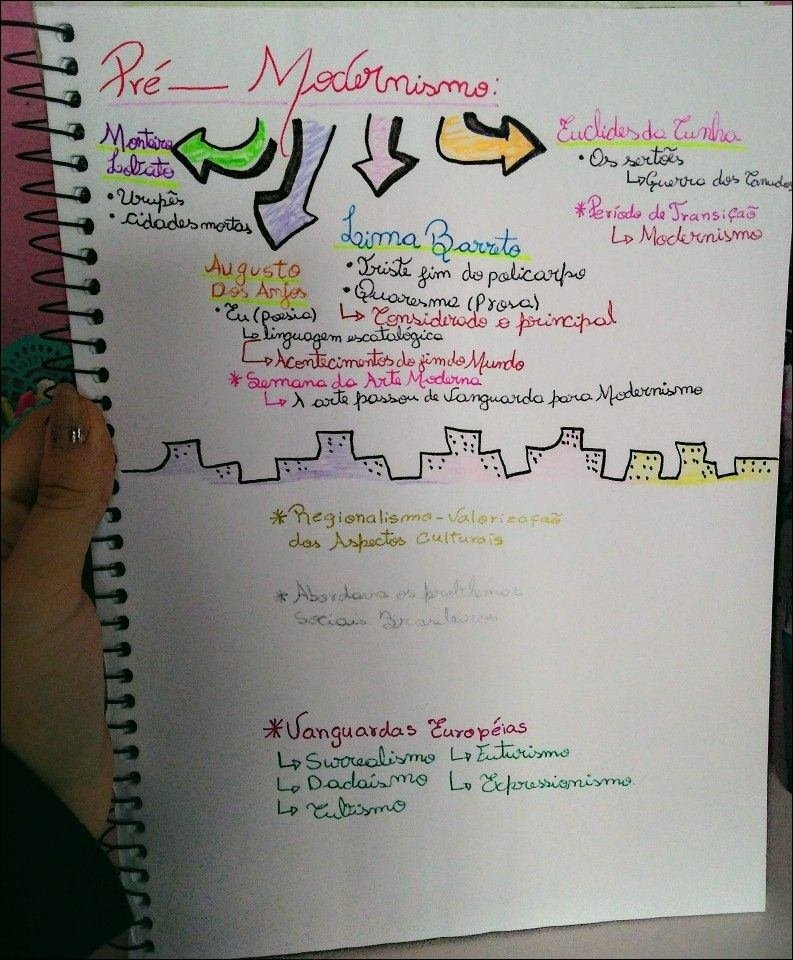 Pré - Modernismo:
Monteiro
Lobato
• Urupês
• cidades mortas
Augusto
Dos Anjos
• Eu (poesia)
↳ linguagem escatológica
↳ Acontecimentos do fim do Mundo
Lima Barreto
• Triste fim do policarpo
• Quaresma (Prosa)
↳ Considerado o principal
Euclides da Cunha
• Os sertões
↳ Guerra dos Canudos
* Período de Transição
↳ Modernismo
* Semana da Arte Moderna
↳ A arte passou de Vanguarda para Modernismo
* Regionalismo - Valorização
dos Aspectos Culturais
* Abordava os problemas
Sociais Brasileiros
* Vanguardas Européias
↳ Surrealismo ↳ Futurismo
↳ Dadaísmo ↳ Expressionismo
↳ Cubismo